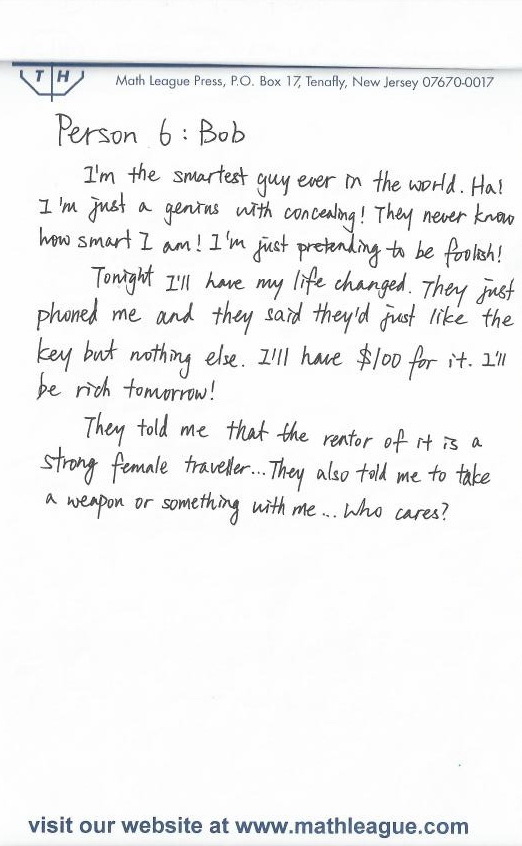 T H
Math League Press, P.O. Box 17, Tenafly, New Jersey 07670-0017
Person 6 : Bob
I'm the smartest guy ever in the world. Ha!
I'm just a genius with concealing! They never know
how smart I am! I'm just pretending to be foolish!
Tonight I'll have my life changed. They just
phoned me and they said they'd just like the
key but nothing else. I'll have $100 for it. I'll
be rich tomorrow!
They told me that the rentor of it is a
strong female traveller... They also told me to take
a weapon or something with me... Who cares?
visit our website at www.mathleague.com